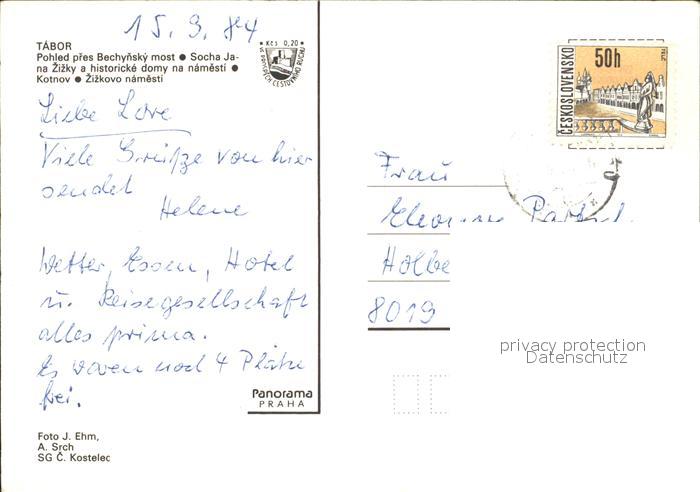 15. 9. 84
TÁBOR
Pohled přes Bechyňský most ● Socha Ja-
na Žižky a historické domy na náměstí ●
Kotnov ● Žižkovo náměstí
Kčs 0,20
VE PROSPĚCH CESTOVNÍHO RUCHU
ČESKOSLOVENSKO
50h
Liebe Lore
Viele Grüße von hier
sendet
Helene
Wetter, Essen, Hotel
u. Reisegesellschaft
alles prima.
Es waren noch 4 Plätze
frei.
Frau
Holbe
8019
privacy protection
Datenschutz
Panorama
PRAHA
Foto J. Ehm,
A. Srch
SG Č. Kostelec